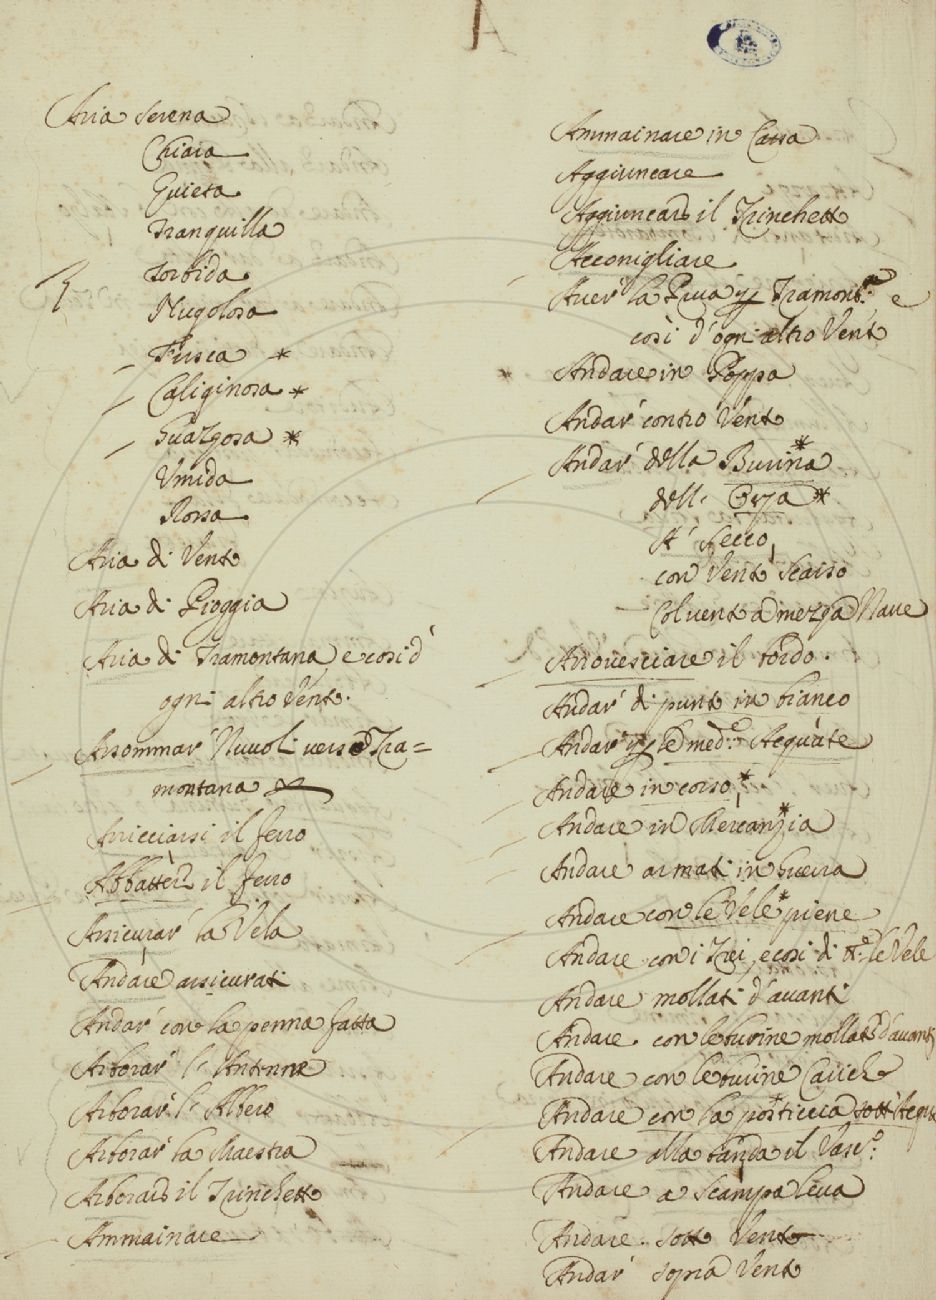 A
Aria Serena
Chiara
Quieta
Tranquilla
Torbida
Nugolosa
Fusca *
Caliginosa *
Guazzosa *
Umida
Rossa
Aria di Vento
Aria di Pioggia
Aria di Tramontana e cosi d'
ogni altro Vento.
Assommar Nuvoli verso Tra=
montana
Arricciarsi il ferro
Abbatter il ferro
Assicurar la Vela
Andare assicurati
Andar con la penna fatta
Arborar l'Antenne
Arborar l'Albero
Arborar la Maestra
Arborar il Trinchetto
Ammainare
Ammainare in Cassa
Aggiuncare
Aggiuncare il Trinchetto
Acconigliare
Aver la Prua p Tramont.a e
così d'ogni altro Vento
Andare in Poppa
Andar contro Vento
Andar della Burina *
dell' Orza *
A Secco
con Vento Scarso
Col vento a mezza Nave
Arrovesciare il bordo.
Andar di punto in bianco
Andar p le med.e Acquate
Andare in corso *
Andare in Mercanzia *
Andare armati in Guerra
Andare con le Vele * piene
Andare con i Trei, e cosi di tt.e le Vele
Andare mollati d'avanti
Andare con le burine mollate d'avanti
Andare con le burine Cariche
Andare con la posticcia sott'Acqua
Andare alla banda il Vasc.o
Andare a Scampa leva
Andare sotto Vento
Andar sopra Vento